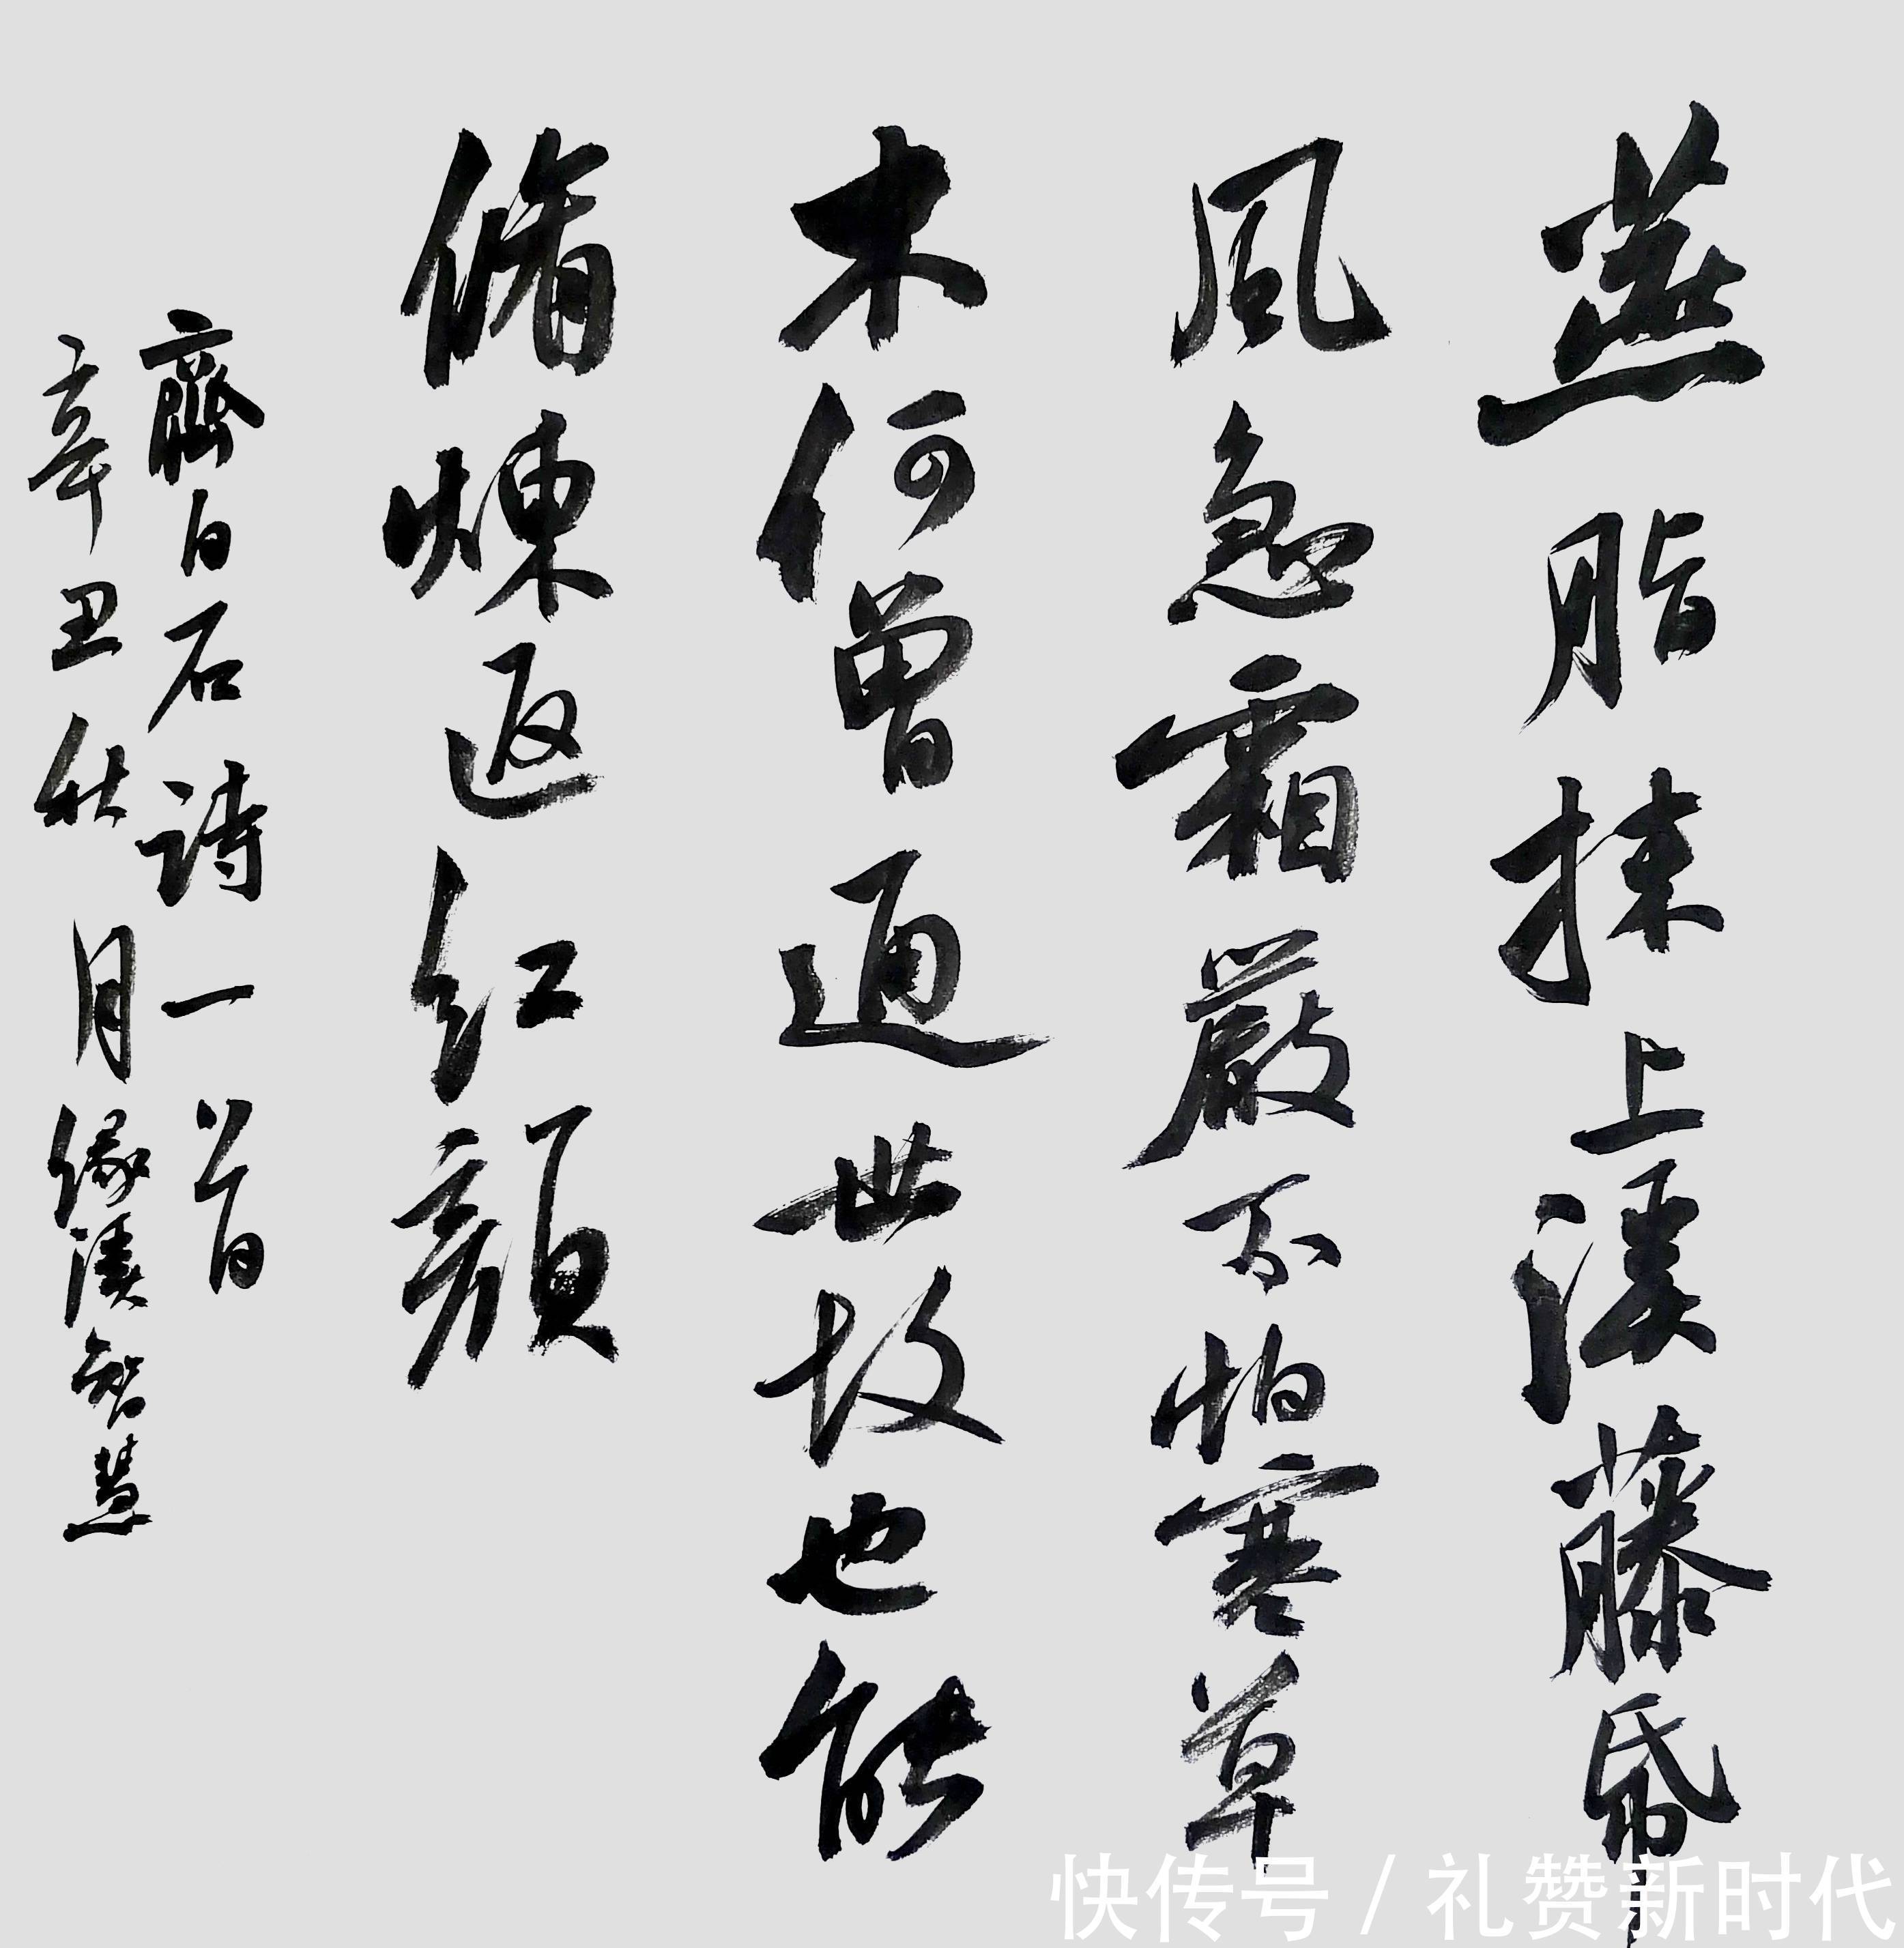 燕脂抹上溪藤帋
風急霜嚴不怕寒草
木何曾通世故也能
脩煉返红顔
齊白石詩一首
辛丑秋月缘溪智慧
快传号/礼赞新时代